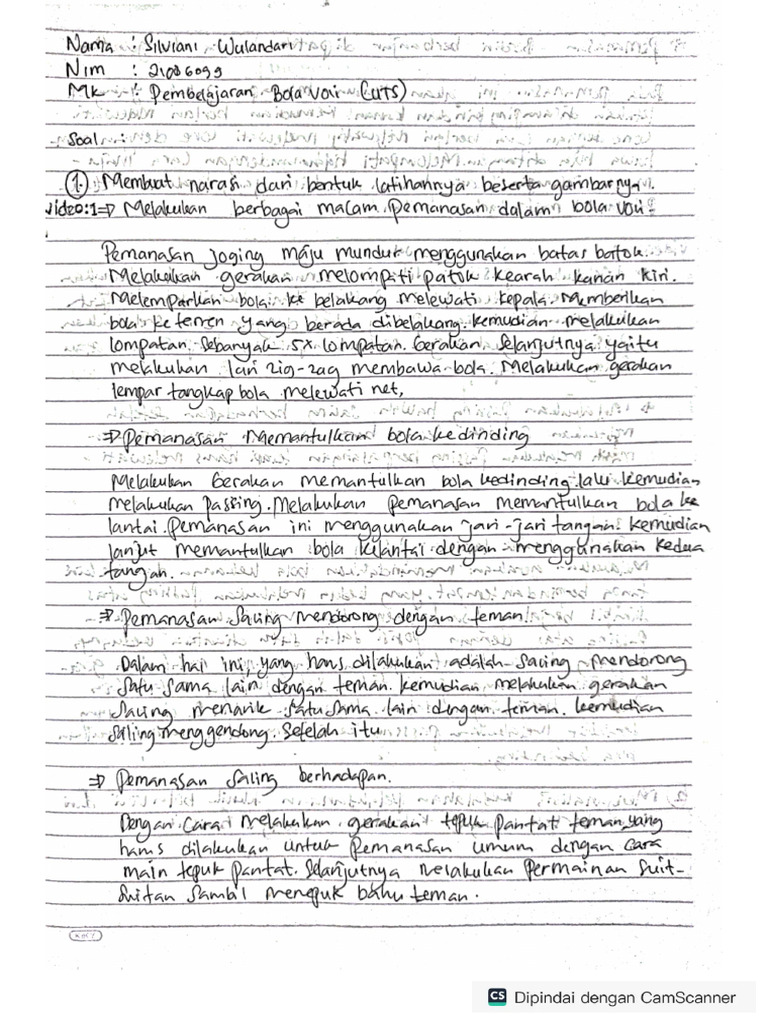 Nama : Silviani Wulandari
Nim : 21086099
Mk : Pembelajaran Bola voli (UTS)
Soal :
1. Membuat narasi dari bentuk latihannya beserta gambarnya.
Video:1 => Melakukan berbagai macam pemanasan dalam bola voli
Pemanasan joging maju mundur menggunakan batas patok.
Melakukan gerakan melompati patok kearah kanan kiri.
Melemparkan bola ke belakang melewati kepala. Memberikan
bola ke temen yang berada dibelakang. kemudian melakukan
lompatan sebanyak 5x lompatan. Gerakan selanjutnya yaitu
melakukan lari zig-zag membawa bola. Melakukan gerakan
lempar tangkap bola melewati net,
=> Pemanasan Memantulkan bola kedinding
Melakukan Gerakan memantulkan bola kedinding lalu kemudian
melakukan Passing. Melakukan pemanasan memantulkan bola ke
lantai. Pemanasan ini menggunakan jari-jari tangan. kemudian
lanjut memantulkan bola kelantai dengan menggunakan kedua
tangan.
=> Pemanasan Saling mendorong dengan teman
Dalam hal ini yang harus dilakukan adalah saling mendorong
satu sama lain dengan teman. kemudian melakukan gerakan
saling menarik satu sama lain dengan teman. kemudian
saling menggendong. setelah itu
=> Pemanasan Saling berhadapan.
Dengan Cara melakukan gerakan tepuk pantat teman yang
harus dilakukan untuk Pemanasan umum dengan cara
main tepuk pantat. Selanjutnya melakukan Permainan Suit-
Suitan Sambil menepuk bahu teman.
CS Dipindai dengan CamScanner